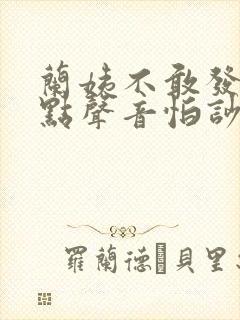 蘭姨不敢發
點聲音怕訪
羅蘭德·貝里